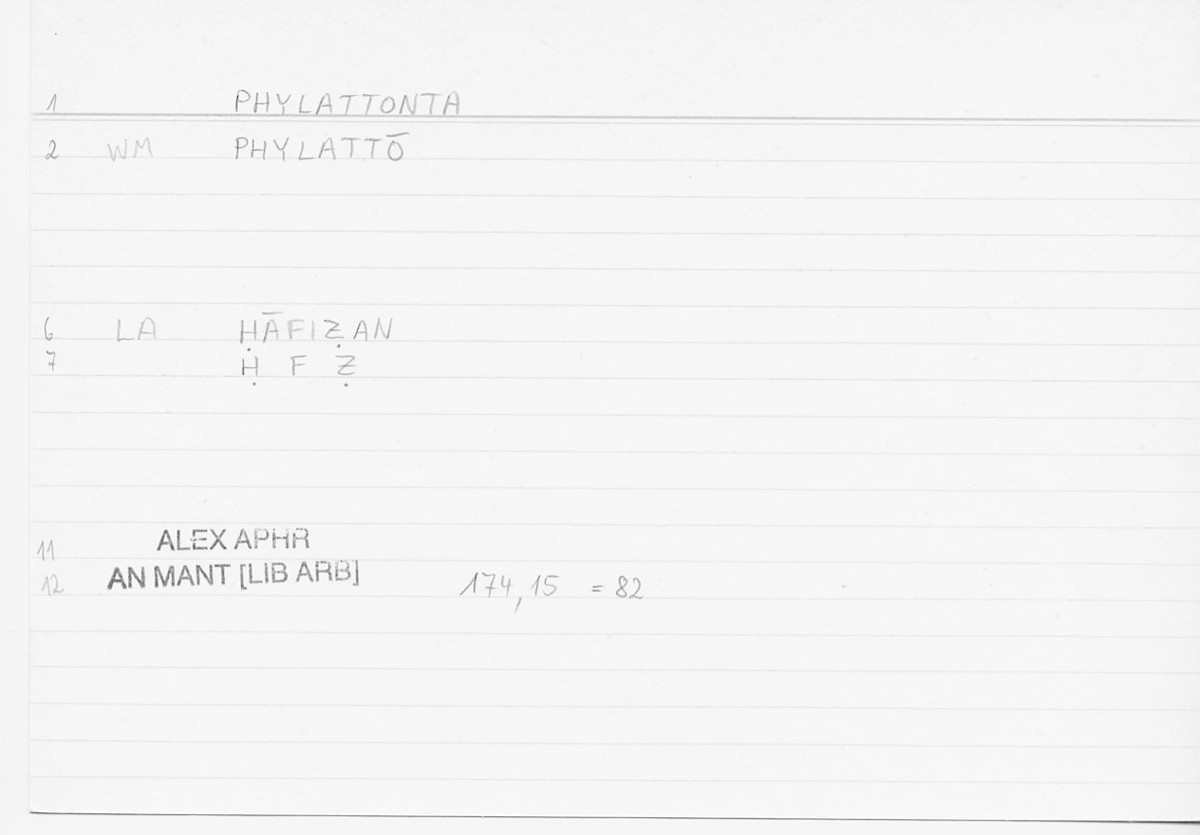 1 PHYLATTONTA
2 WM PHYLATTŌ
6 LA ḤĀFIẒAN
7 Ḥ F Ẓ
11 ALEX APHR
12 AN MANT [LIB ARB] 174,15 = 82